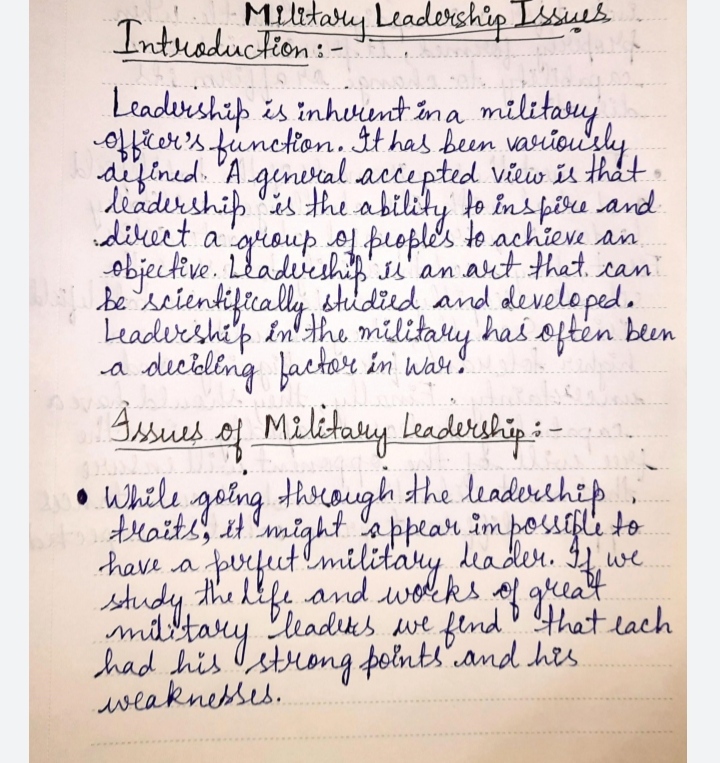 Military Leadership Issues
Introduction :-
Leadership is inherent in a military
officer's function. It has been variously
defined. A general accepted view is that
leadership is the ability to inspire and
direct a group of peoples to achieve an
objective. Leadership is an art that can
be scientifically studied and developed.
Leadership in the military has often been
a deciding factor in war.
Issues of Military Leadership :-
• While going through the leadership
traits, it might appear impossible to
have a perfect military leader. If we
study the life and works of great
military leaders we find that each
had his strong points and his
weaknesses.